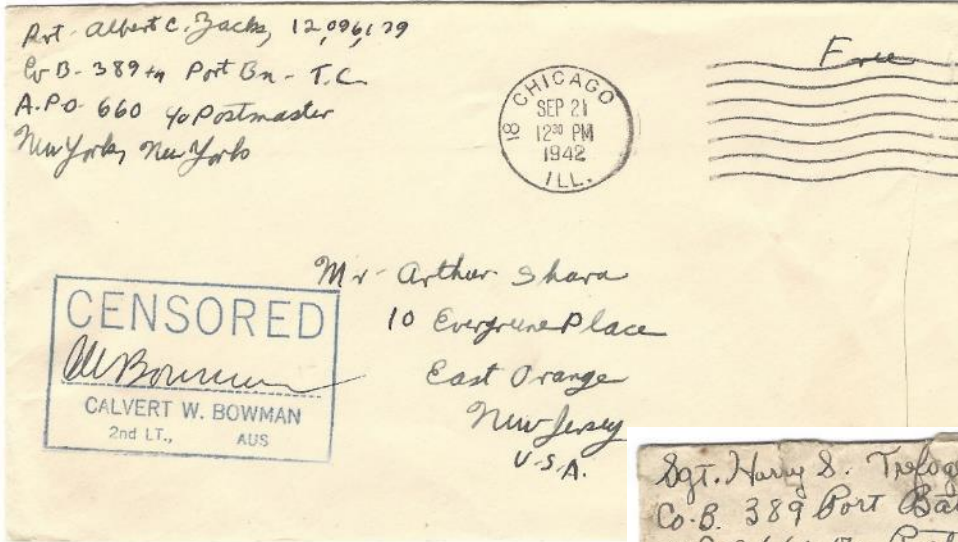 Pvt - Albert C. Zachs, 12,096,179
Co B - 389th Port Bn - T.C.
A.P.O. 660 c/o Postmaster
New York, New York
Free
CHICAGO
SEP 21
12 30 PM
1942
ILL.
18
Mr - Arthur Shara
10 Evergrene Place
East Orange
New Jersey
U.S.A.
CENSORED
CW Bowman
CALVERT W. BOWMAN
2nd LT., AUS
Sgt. Harry S.
Co. B. 389 Port